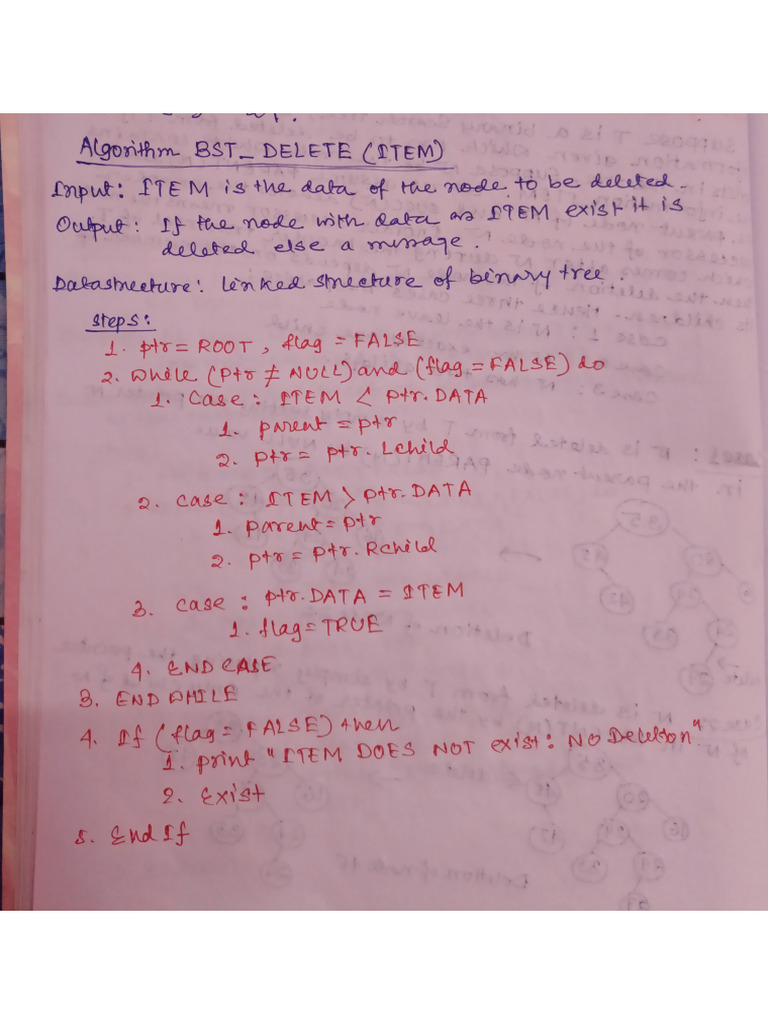 Algorithm BST_DELETE (ITEM)
Input: ITEM is the data of the node to be deleted.
Output: If the node with data as ITEM exist it is
deleted else a message.
Datastructure: linked structure of binary tree.
Steps:
1. ptr = ROOT, flag = FALSE
2. While (ptr ≠ NULL) and (flag = FALSE) do
1. Case: ITEM < ptr.DATA
1. parent = ptr
2. ptr = ptr.Lchild
2. case: ITEM > ptr.DATA
1. parent = ptr
2. ptr = ptr.Rchild
3. case: ptr.DATA = ITEM
1. flag = TRUE
4. END CASE
3. END WHILE
4. If (flag = FALSE) then
1. print "ITEM DOES NOT exist: NO Deletion"
2. Exist
5. End If